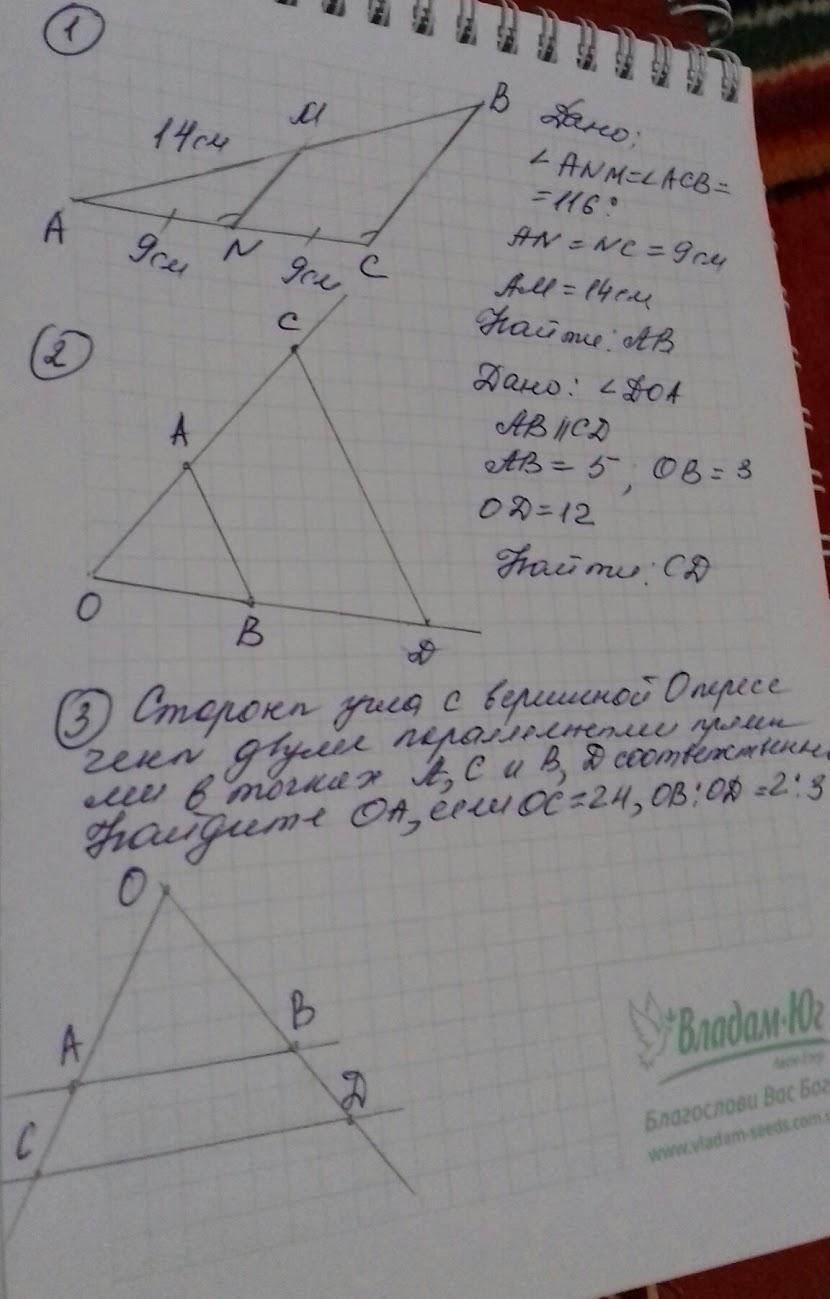 1
14см
М
В
А
9см
N
9см
С
Дано:
∠ANM=∠ACB=
=116°
AN=NC=9см
АМ=14см
Найти: АВ
2
С
А
О
В
D
Дано: ∠DOA
AB∥CD
АВ=5, ОВ=3
OD=12
Найти: CD
3 Стороны угла с вершиной О пересе
чены двумя параллельными прямы
ми в точках А, С и В, D соответственно
Найдите ОА, если ОС=24, ОВ:OD=2:3
О
А
В
С
D
Владам-Юг
Благослови Вас Бог
www.vladam-seeds.com.u